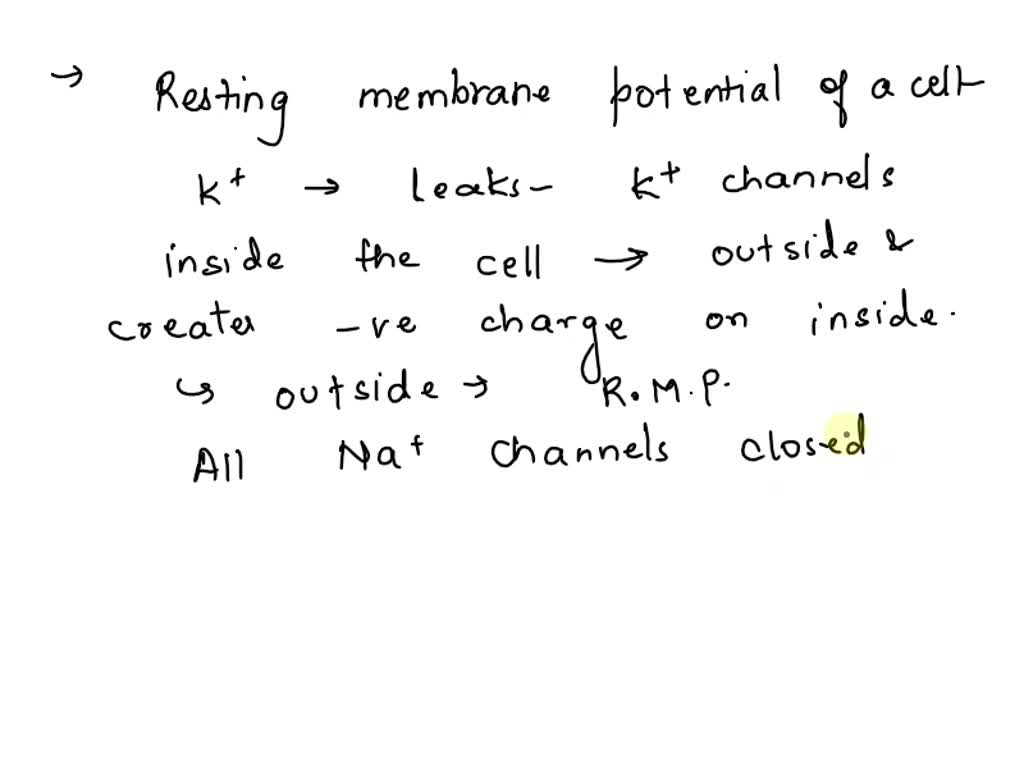 → Resting membrane potential of a cell
K+ → leaks- K+ channels
inside the cell → outside &
creates -ve charge on inside.
↳ outside → R.M.P.
All Na+ channels closed